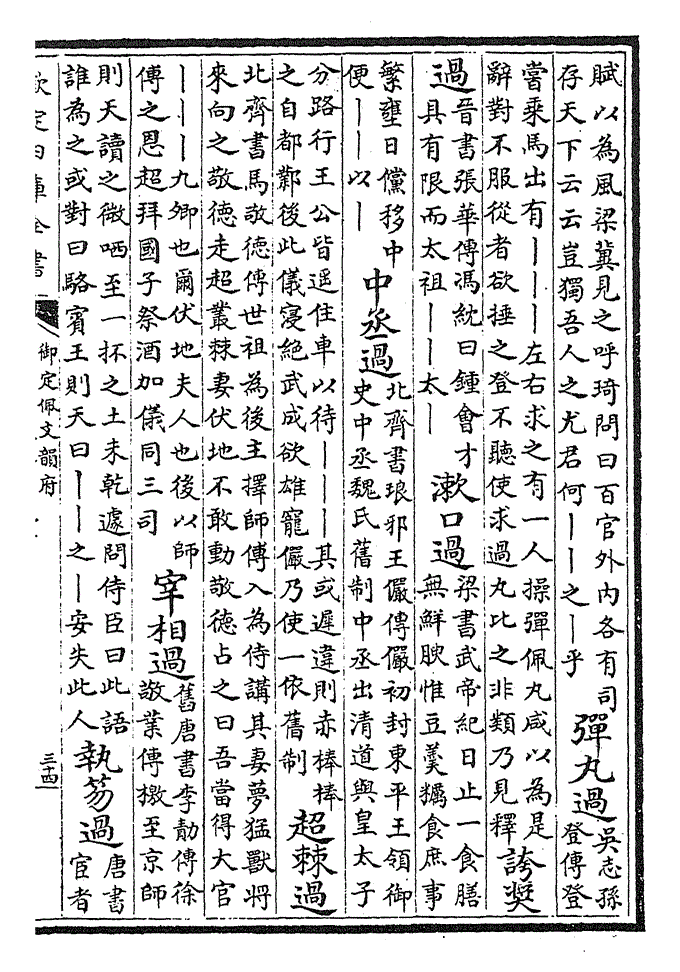 賦以為風梁冀見之呼琦問曰百官外内各有司
存天下云云豈獨吾人之尤君何——之—乎
彈丸過
吳志孫
登傳登
嘗乘馬出有———左右求之有一人操彈佩丸咸以為是
辭對不服從者欲捶之登不聽使求過丸比之非類乃見釋
誇奨
過
晉書張華傳馮紞曰鍾會才
具有限而太祖——太—
漱口過
梁書武帝紀日止一食膳
無鮮腴惟豆羮糲食庶事
繁壅日儻移中
便——以—
中丞過
北齊書琅邪王儼傳儼初封東平王領御
史中丞魏氏舊制中丞出清道與皇太子
分路行王公皆遥住車以待———其或遲違則赤棒棒
之自都鄴後此儀寖絶武成欲雄寵儼乃使一依舊制
超棘過
北齊書馬敬德傳世祖為後主擇師傅入為侍講其妻夢猛獸將
來向之敬德走超叢棘妻伏地不敢動敬德占之曰吾當得大官
———九卿也爾伏地夫人也後以師
傅之恩超拜國子祭酒加儀同三司
宰相過
舊唐書李勣傳徐
敬業傳檄至京師
則天讀之微哂至一抔之土未乾遽問侍臣曰此語
誰為之或對曰駱賓王則天曰——之—安失此人
執笏過
唐書
宦者
欽定四庫全書
御定佩文韻府
三十四